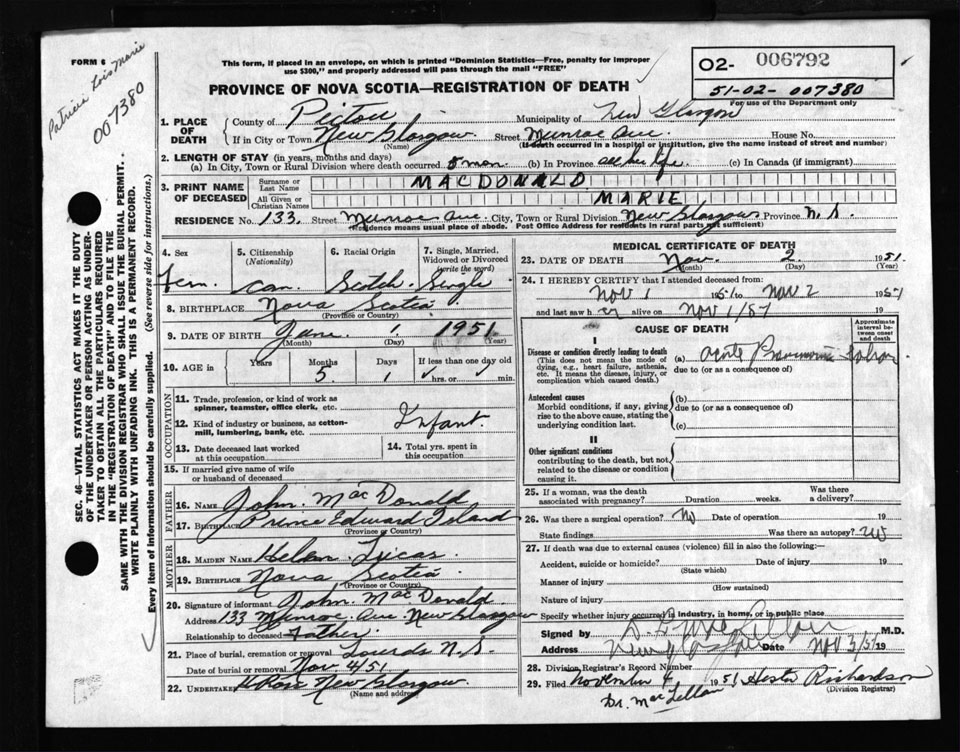 FORM 6
Patricia Lois Marie
007380
This form, if placed in an envelope, on which is printed "Dominion Statistics—Free, penalty for improper
use $300," and properly addressed will pass through the mail "FREE"
PROVINCE OF NOVA SCOTIA—REGISTRATION OF DEATH
O2- 006792
51-02-007380
For use of the Department only
SEC. 46—VITAL STATISTICS ACT MAKES IT THE DUTY
OF THE UNDERTAKER OR PERSON ACTING AS UNDER-
TAKER TO OBTAIN ALL THE PARTICULARS REQUIRED
IN THE "REGISTRATION OF DEATH" AND TO FILE THE
SAME WITH THE DIVISION REGISTRAR WHO SHALL ISSUE THE BURIAL PERMIT.
WRITE PLAINLY WITH UNFADING INK. THIS IS A PERMANENT RECORD.
Every item of Information should be carefully supplied. (See reverse side for instructions.)
1. PLACE OF DEATH
County of Pictou Municipality of New Glasgow
If in City or Town New Glasgow Street Munroe Ave. House No.
(Name) (If death occurred in a hospital or institution, give the name instead of street and number)
2. LENGTH OF STAY (in years, months and days)
(a) In City, Town or Rural Division where death occurred 5 mon. (b) In Province all her life. (c) In Canada (if immigrant)
3. PRINT NAME OF DECEASED
Surname or Last Name MACDONALD
All Given or Christian Names MARIE
RESIDENCE No. 133. Street Munroe Ave. City, Town or Rural Division New Glasgow Province N.S.
(Residence means usual place of abode. Post Office Address for residents in rural parts not sufficient)
4. Sex Fem.
5. Citizenship (Nationality) Can.
6. Racial Origin Scotch.
7. Single, Married, Widowed or Divorced (write the word) Single
8. BIRTHPLACE Nova Scotia
(Province or Country)
9. DATE OF BIRTH June. 1. 1951
(Month) (Day) (Year)
10. AGE in Years Months 5 Days 1 If less than one day old hrs. or min.
OCCUPATION
11. Trade, profession, or kind of work as
spinner, teamster, office clerk, etc.
12. Kind of industry or business, as cotton-
mill, lumbering, bank, etc. Infant.
13. Date deceased last worked
at this occupation
14. Total yrs. spent in
this occupation
15. If married give name of wife
or husband of deceased
FATHER
16. Name John. MacDonald
17. Birthplace Prince Edward Island
(Province or Country)
MOTHER
18. MAIDEN NAME Helen Lucas.
19. BIRTHPLACE Nova Scotia
(Province or Country)
20. Signature of informant John. MacDonald
Address 133 Munroe. Ave. New Glasgow
Relationship to deceased Father.
21. Place of burial, cremation or removal Lourds N.S.
Date of burial or removal Nov 4/51
22. UNDERTAKER Ross New Glasgow.
(Name and address)
MEDICAL CERTIFICATE OF DEATH
23. DATE OF DEATH Nov. 2 1951
(Month) (Day) (Year)
24. I HEREBY CERTIFY that I attended deceased from:
Nov 1 1951 to Nov 2 1951
and last saw her alive on Nov 1/51 19
CAUSE OF DEATH
Approximate interval between onset and death
I
Disease or condition directly leading to death
(This does not mean the mode of
dying, e.g., heart failure, asthenia,
etc. It means the disease, injury, or
complication which caused death.)
(a) Acute Pneumonia Lobar
due to (or as a consequence of)
Antecedent causes
Morbid conditions, if any, giving
rise to the above cause, stating the
underlying condition last.
(b)
due to (or as a consequence of)
(c)
II
Other significant conditions
contributing to the death, but not
related to the disease or condition
causing it.
25. If a woman, was the death
associated with pregnancy? Duration weeks. Was there
a delivery?
26. Was there a surgical operation? No Date of operation 19
State findings Was there an autopsy? no
27. If death was due to external causes (violence) fill in also the following:—
Accident, suicide or homicide? Date of injury 19
(State which)
Manner of injury
(How sustained)
Nature of injury
Specify whether injury occurred in industry, in home, or in public place
Signed by M.D.
Address New Glasgow Date Nov 3/51 19
28. Division Registrar's Record Number
29. Filed November 4 1951 Hester Richardson
(Division Registrar)
Dr. MacLellan